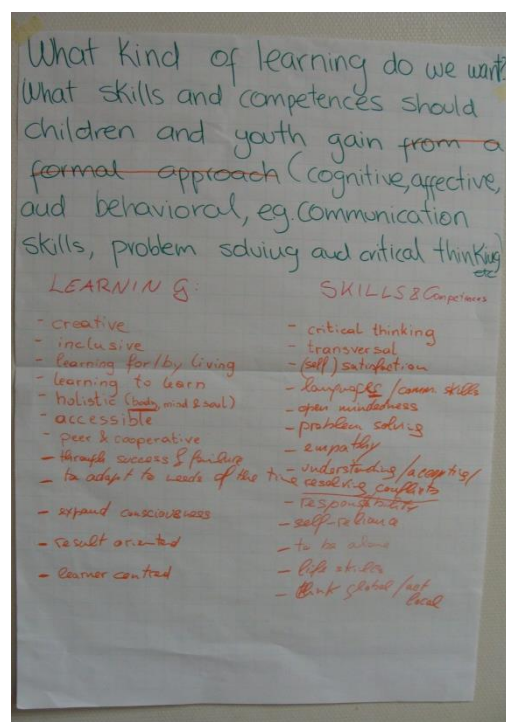 What kind of learning do we want?
What skills and competences should
children and youth gain from a
formal approach (cognitive, affective,
and behavioral, eg. communication
skills, problem solving and critical thinking
etc)
LEARNING:
- creative
- inclusive
- learning for/by living
- learning to learn
- holistic (body, mind & soul)
- accessible
- peer & cooperative
- through success & failure
- to adapt to needs of the time
- expand consciousness
- result oriented
- learner centred
SKILLS & Competences
- critical thinking
- transversal
- (self) satisfaction
- languages / comm. skills
- open mindedness
- problem solving
- empathy
- understanding / accepting /
resolving conflicts
- responsibility
- self-reliance
- to be alone
- life skills
- think global / act
local